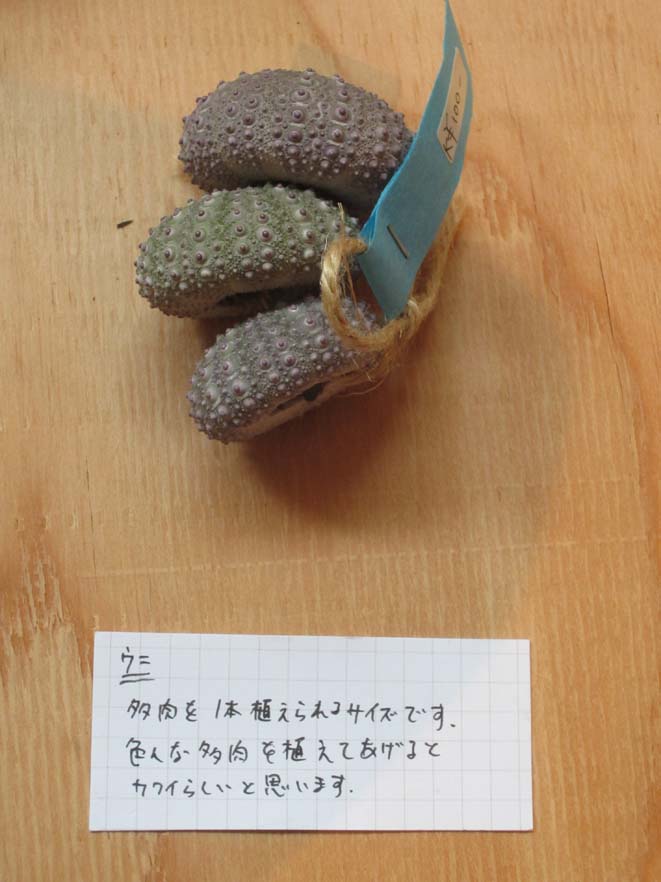 ¥100-
ウニ
多肉を1本植えられるサイズです.
色んな多肉を植えてあげると
カワイらしいと思います.